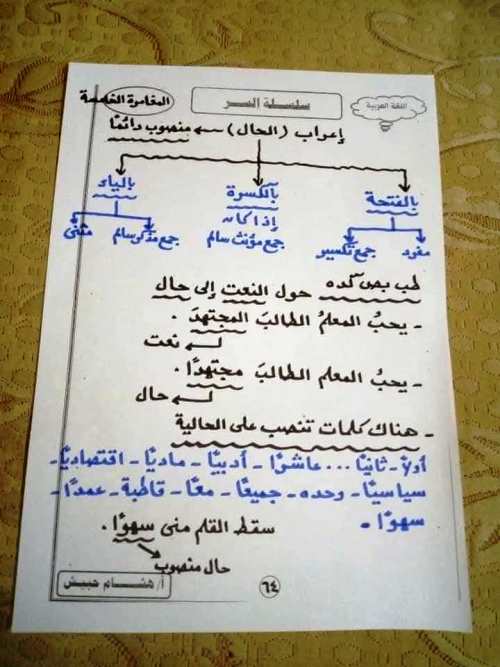 اللغة العربية
سلسلة السر
المغامرة الخامسة
إعراب (الحال) ← منصوب دائمًا
بالفتحة
بالكسرة
بالياء
إذا كان
مفرد
جمع تكسير
جمع مؤنث سالم
جمع مذكر سالم
مثنى
طب بص كده حول النعت إلى حال
- يحبُ المعلمُ الطالبَ المجتهدَ .
نعت
- يحبُ المعلم الطالبَ مجتهدًا .
حال
- هناك كلمات تنصب على الحالية
أولاً - ثانيًا ... عاشرًا - أدبيًا - ماديًا - اقتصاديًا -
سياسيًا - وحده - جميعًا - معًا - قاطبة - عمدًا -
سهوًا -
سقط القلم منى سهوًا .
حال منصوب
٦٤
أ/ هشام حبيش